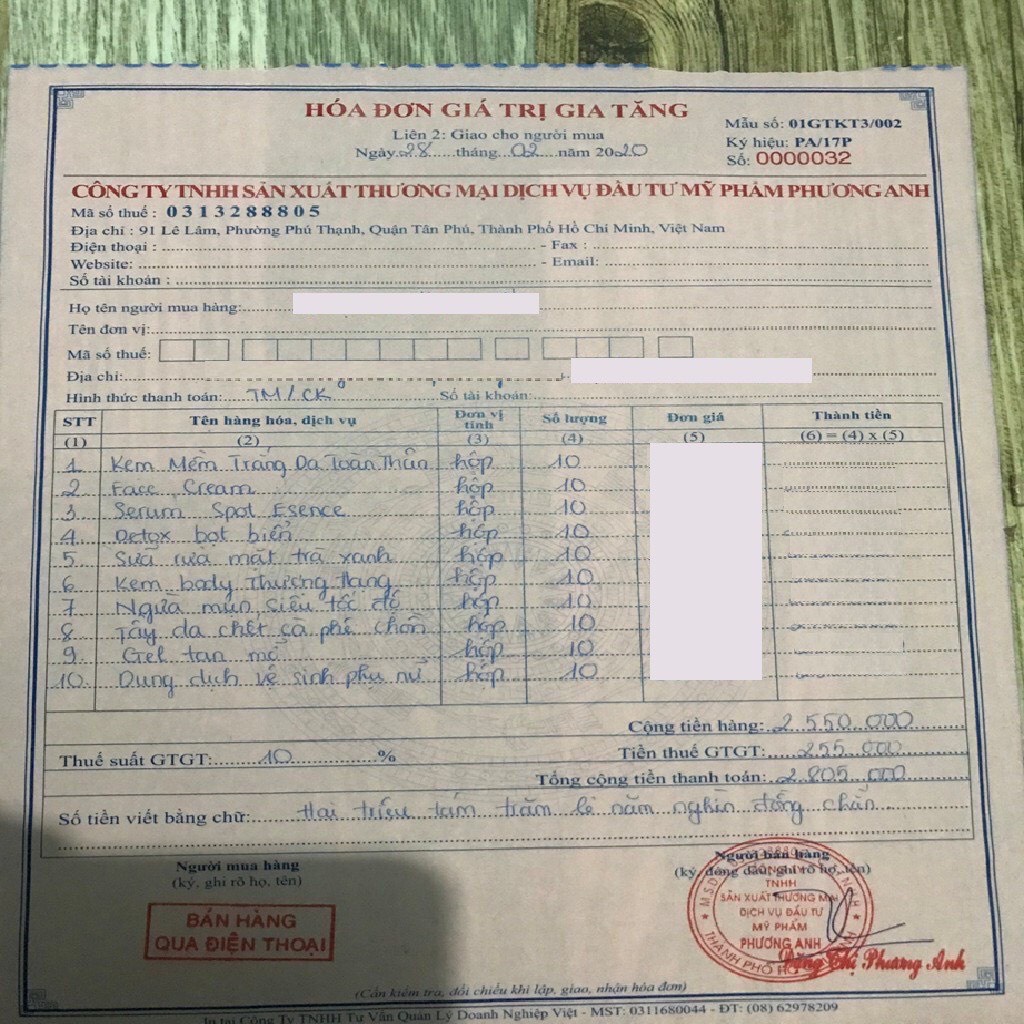 HÓA ĐƠN GIÁ TRỊ GIA TĂNG
Liên 2: Giao cho người mua
Ngày 28 tháng 02 năm 2020
Mẫu số: 01GTKT3/002
Ký hiệu: PA/17P
Số: 0000032
CÔNG TY TNHH SẢN XUẤT THƯƠNG MẠI DỊCH VỤ ĐẦU TƯ MỸ PHẨM PHƯƠNG ANH
Mã số thuế : 0313288805
Địa chỉ : 91 Lê Lâm, Phường Phú Thạnh, Quận Tân Phú, Thành Phố Hồ Chí Minh, Việt Nam
Điện thoại : - Fax :
Website: - Email:
Số tài khoản :
Họ tên người mua hàng:
Tên đơn vị:
Mã số thuế:
Địa chỉ:
Hình thức thanh toán: TM/CK Số tài khoản:
STT Tên hàng hóa, dịch vụ Đơn vị tính Số lượng Đơn giá Thành tiền
(1) (2) (3) (4) (5) (6) = (4) x (5)
1 Kem Mềm Trắng Da Toàn Thân hộp 10
2 Face Cream hộp 10
3 Serum Spot Esence hộp 10
4 Detox bọt biển hộp 10
5 Sữa rửa mặt trà xanh hộp 10
6 Kem body Thượng Hạng hộp 10
7 Ngừa mụn siêu tốc độ hộp 10
8 Tẩy da chết cà phê chồn hộp 10
9 Gel tan mỡ hộp 10
10 Dung dịch vệ sinh phụ nữ hộp 10
Cộng tiền hàng: 2.550.000
Thuế suất GTGT: 10 % Tiền thuế GTGT: 255.000
Tổng cộng tiền thanh toán: 2.805.000
Số tiền viết bằng chữ: Hai triệu tám trăm lẻ năm nghìn đồng chẵn
Người mua hàng
(ký, ghi rõ họ, tên)
BÁN HÀNG
QUA ĐIỆN THOẠI
Người bán hàng
(ký, đóng dấu, ghi rõ họ, tên)
TNHH
SẢN XUẤT THƯƠNG MẠI
DỊCH VỤ ĐẦU TƯ
MỸ PHẨM
PHƯƠNG ANH
THÀNH PHỐ
Thị Phương Anh
(Cần kiểm tra, đối chiếu khi lập, giao, nhận hóa đơn)
In tại Công Ty TNHH Tư Vấn Quản Lý Doanh Nghiệp Việt - MST: 0311680044 - ĐT: (08) 62978209